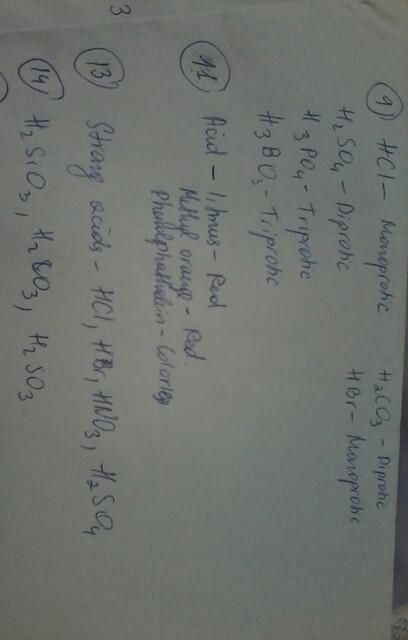 9) HCl - Monoprotic
H2SO4 - Diprotic
H3PO4 - Triprotic
H3BO3 - Triprotic
H2CO3 - Diprotic
HBr - Monoprotic
11 Acid - litmus - Red
Methyl orange - Red
Phenolphthalein - Colorless
13 Strong acids - HCl, HBr, HNO3, H2SO4
14 H2SiO3, H2CO3, H2SO3
3